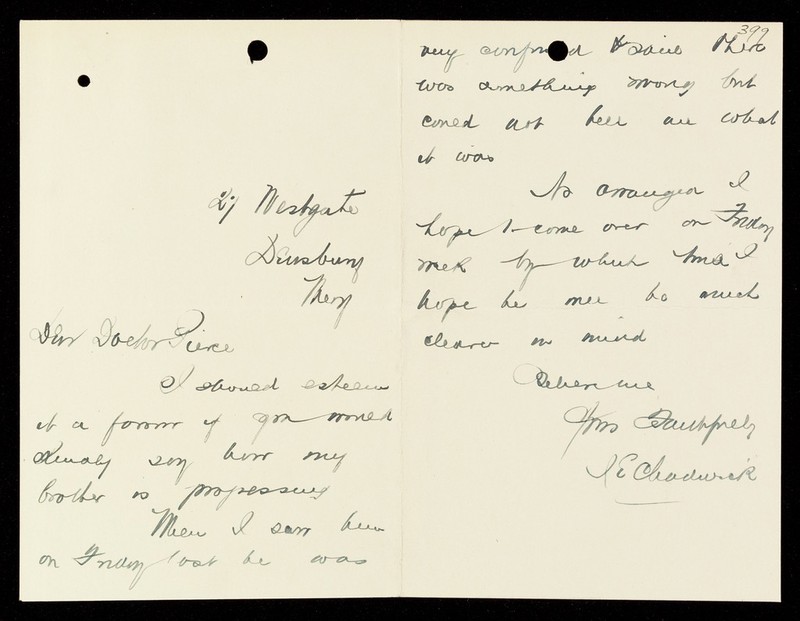 27 Westgate
Dewsbury
Dear Doctor Pierce
I should esteem
it a favour if you would
kindly say how my
brother is progressing
When I saw him
on Friday last he was
399
very confused & said there
was something wrong but
could not tell me what
it was
As arranged I
hope to come over on Friday
next by which time I
hope he will be much
clearer in mind
Believe me
Yours Faithfully
J E Chadwick